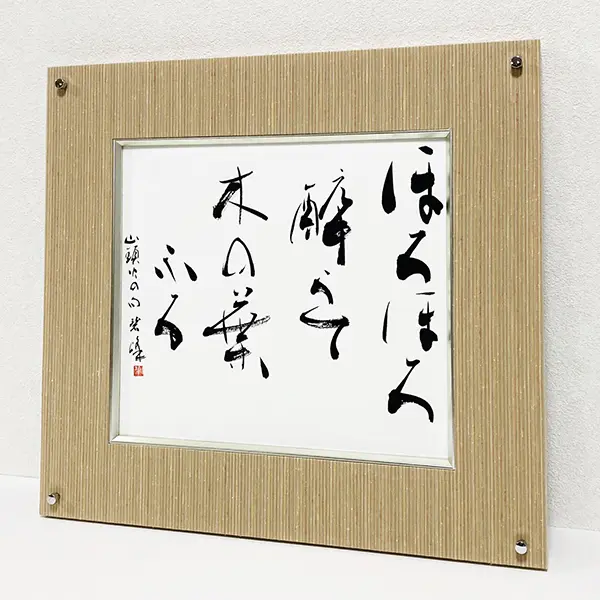 ほろほろ
醉うて
木の葉
ふる
山頭火の句